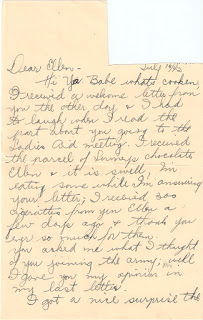 July 14/42
Dear Ellen -
Hi Ya Babe whats cooken,
I received a welcome letter from
you the other day & I had
to laugh when I read the
part about you going to the
Ladies Aid meeting. I received
the parcel of chocolate
Ellen & it is swell, Im
eating some while I'm answering
your letter; I received 300
cigarettes from you Ellen a
few days ago & thank you
ever so much for them.
you asked me what I thought
of you joining the army, well
I gave you my opinion in
my last letter.
I got a nice surprise the